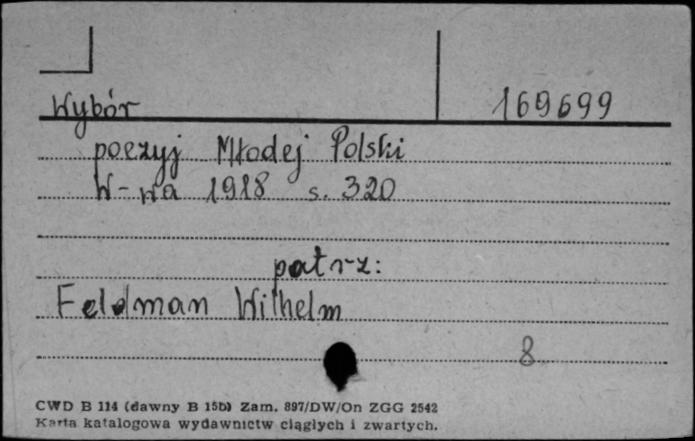 Wybór
169699
poezyj Młodej Polski
W-wa 1918 s. 320
patrz:
Feldman Wilhelm
8
CWD B 114 (dawny B 15b) Zam. 897/DW/On ZGG 2542
Karta katalogowa wydawnictw ciągłych i zwartych.